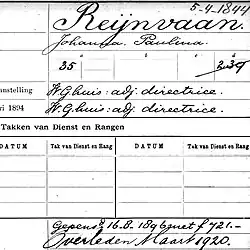 5-4-1844
Reijnvaan.
Johanna Paulina.
35
anstelling W.Ghuis: adj. directrice.
ri 1894 W.Ghuis: adj. directrice.
Takken van Dienst en Rangen
DATUM Tak van Dienst en Rang DATUM Tak van Dienst en Rang
Gepens. 16.8.1896 met f 721.-
Overleden Maart 1920.